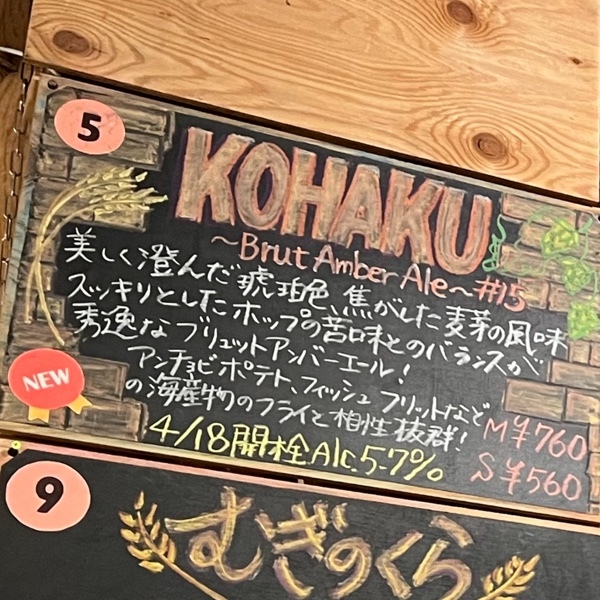 5
KOHAKU
～Brut Amber Ale～#15
美しく澄んだ琥珀色、焦がした麦芽の風味
スッキリとしたホップの苦味とのバランスが
秀逸なブリュットアンバーエール!
アンチョビポテト、フィッシュフリットなど
の海産物のフライと相性抜群!
M¥760
4/18開栓 Alc.5.7%
S¥560
NEW
9
むぎのくら